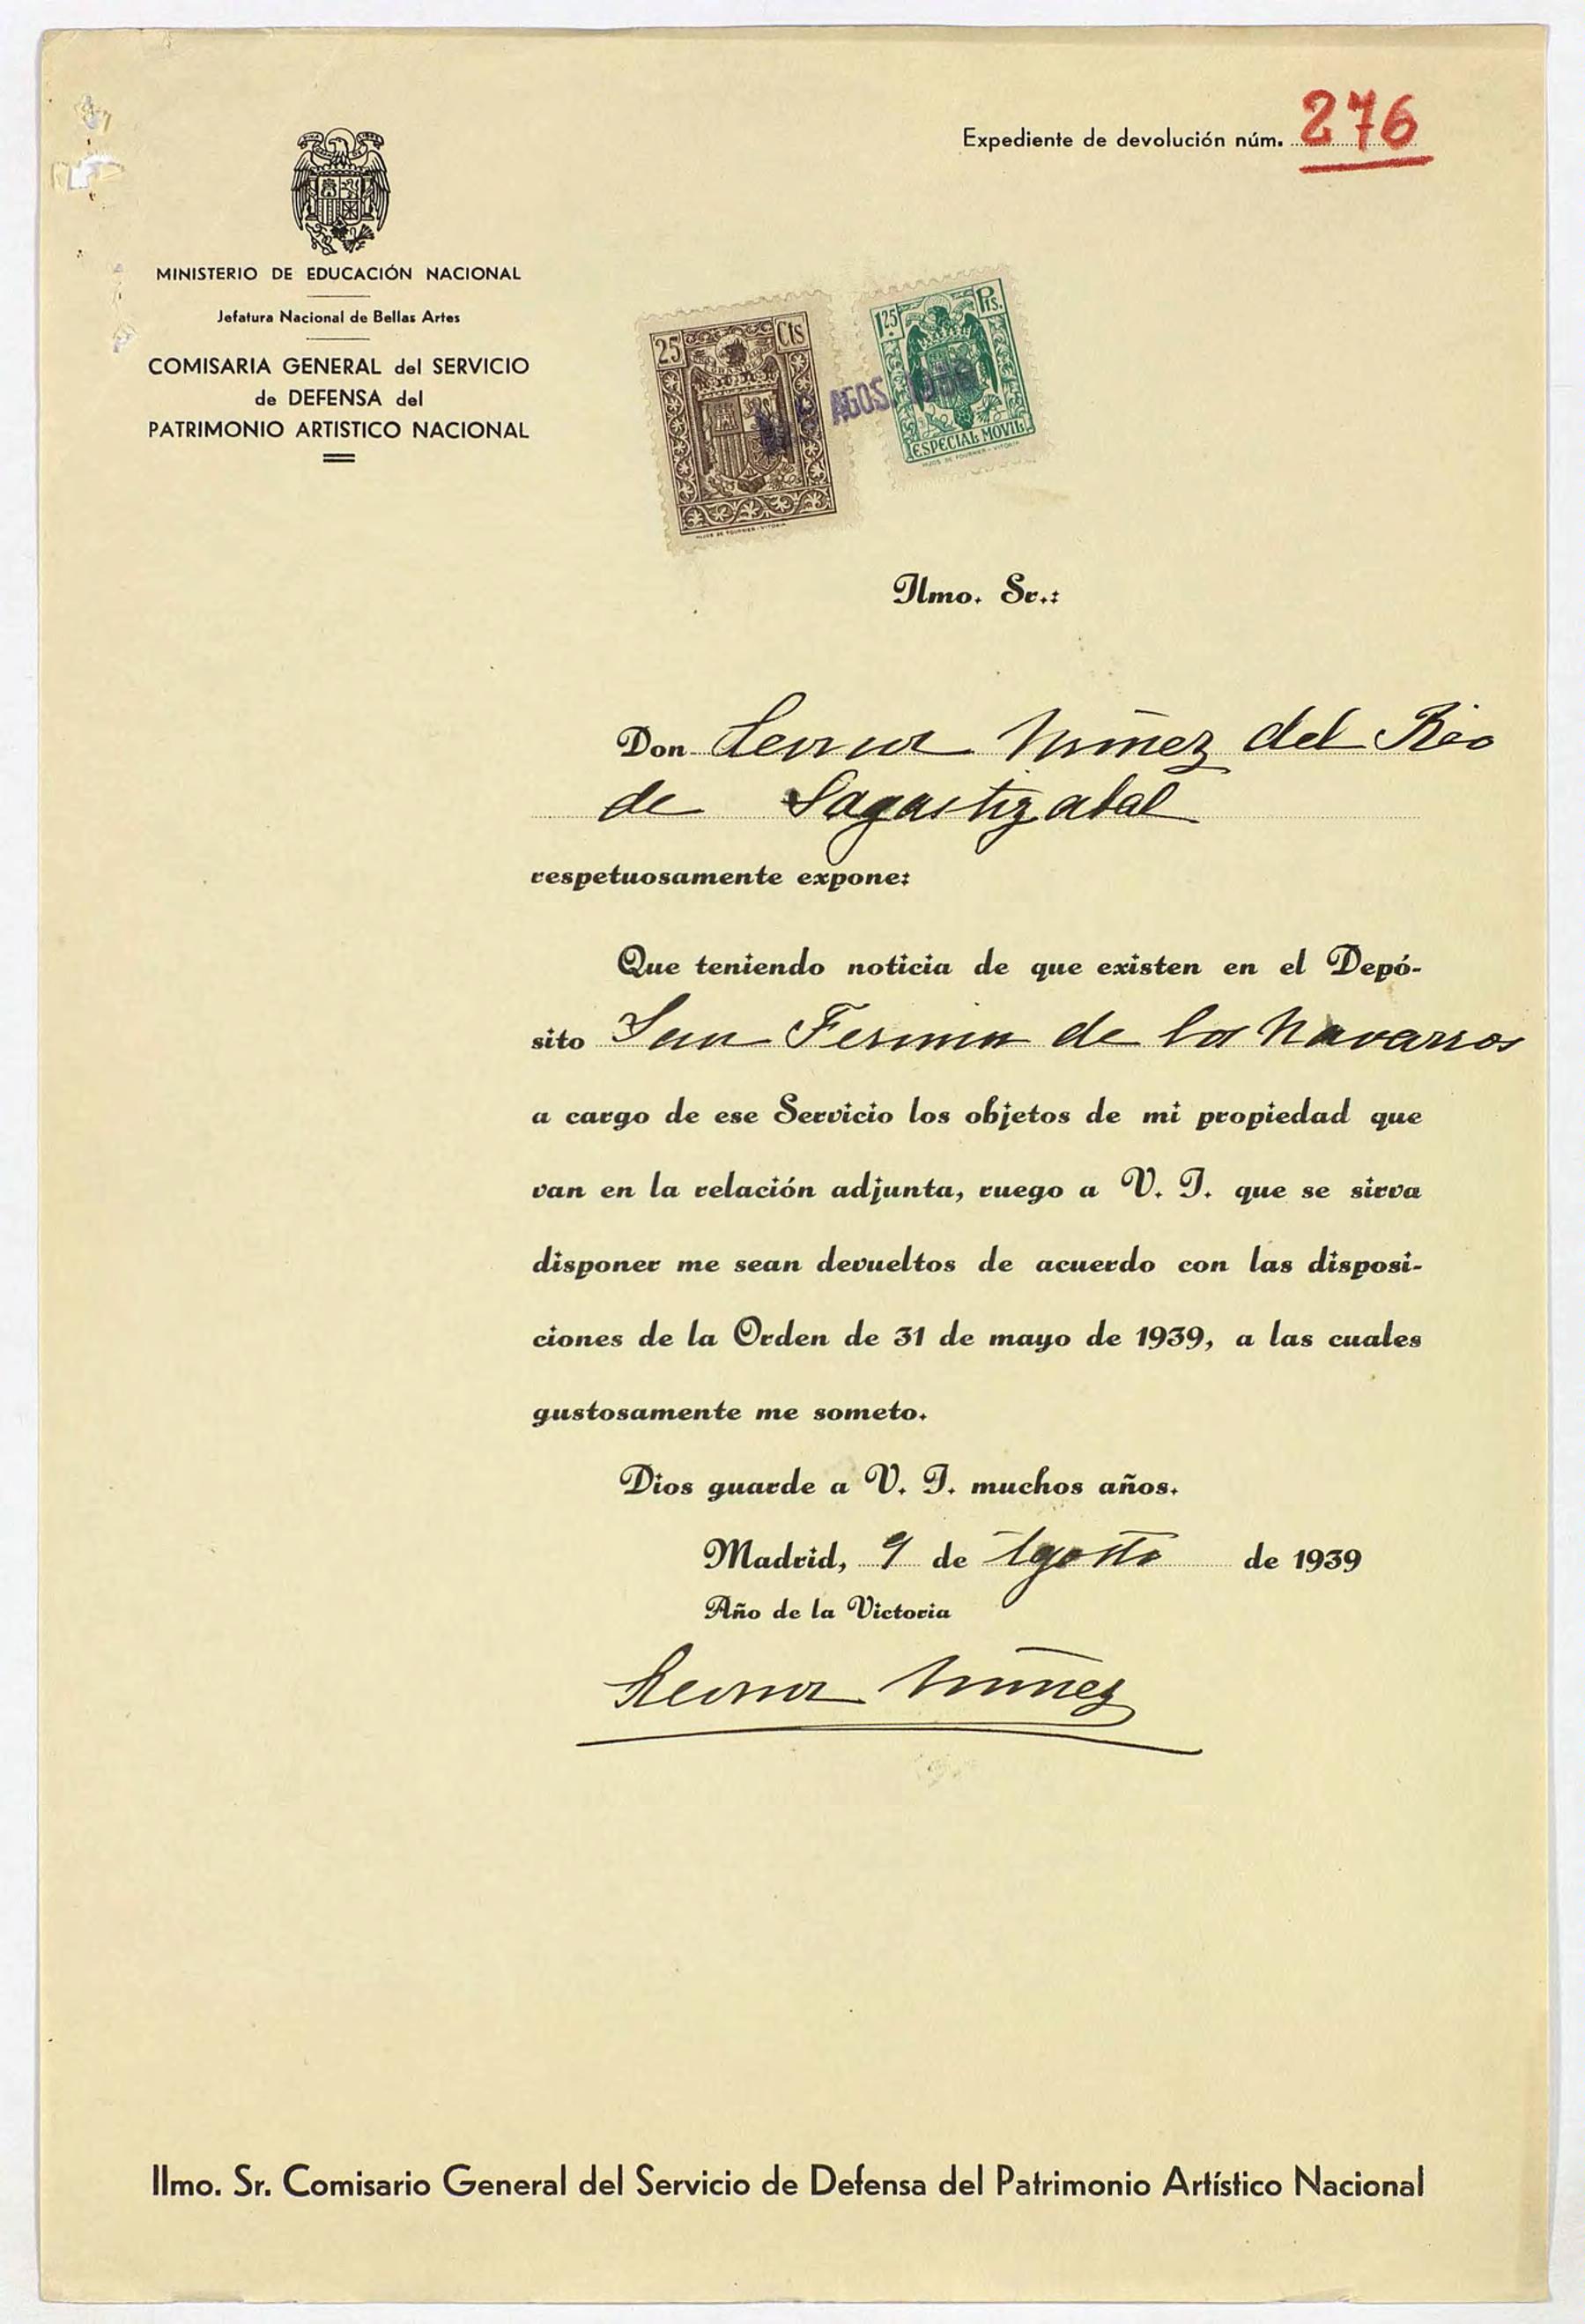 Expediente de devolución núm. 276
MINISTERIO DE EDUCACIÓN NACIONAL
Jefatura Nacional de Bellas Artes
COMISARIA GENERAL del SERVICIO
de DEFENSA del
PATRIMONIO ARTISTICO NACIONAL
25 Cts
HIJOS DE FOURNIER - VITORIA
1.25 Pts.
ESPECIAL MOVIL
HIJOS DE FOURNIER - VITORIA
AGOS.
Ilmo. Sr.:
Don Leonor Núñez del Rio
de Sagastizabal
respetuosamente expone:
Que teniendo noticia de que existen en el Depó-
sito San Fermin de los Navarros
a cargo de ese Servicio los objetos de mi propiedad que
van en la relación adjunta, ruego a V. I. que se sirva
disponer me sean devueltos de acuerdo con las disposi-
ciones de la Orden de 31 de mayo de 1939, a las cuales
gustosamente me someto.
Dios guarde a V. I. muchos años.
Madrid, 9 de Agosto de 1939
Año de la Victoria
Leonor Núñez
Ilmo. Sr. Comisario General del Servicio de Defensa del Patrimonio Artístico Nacional